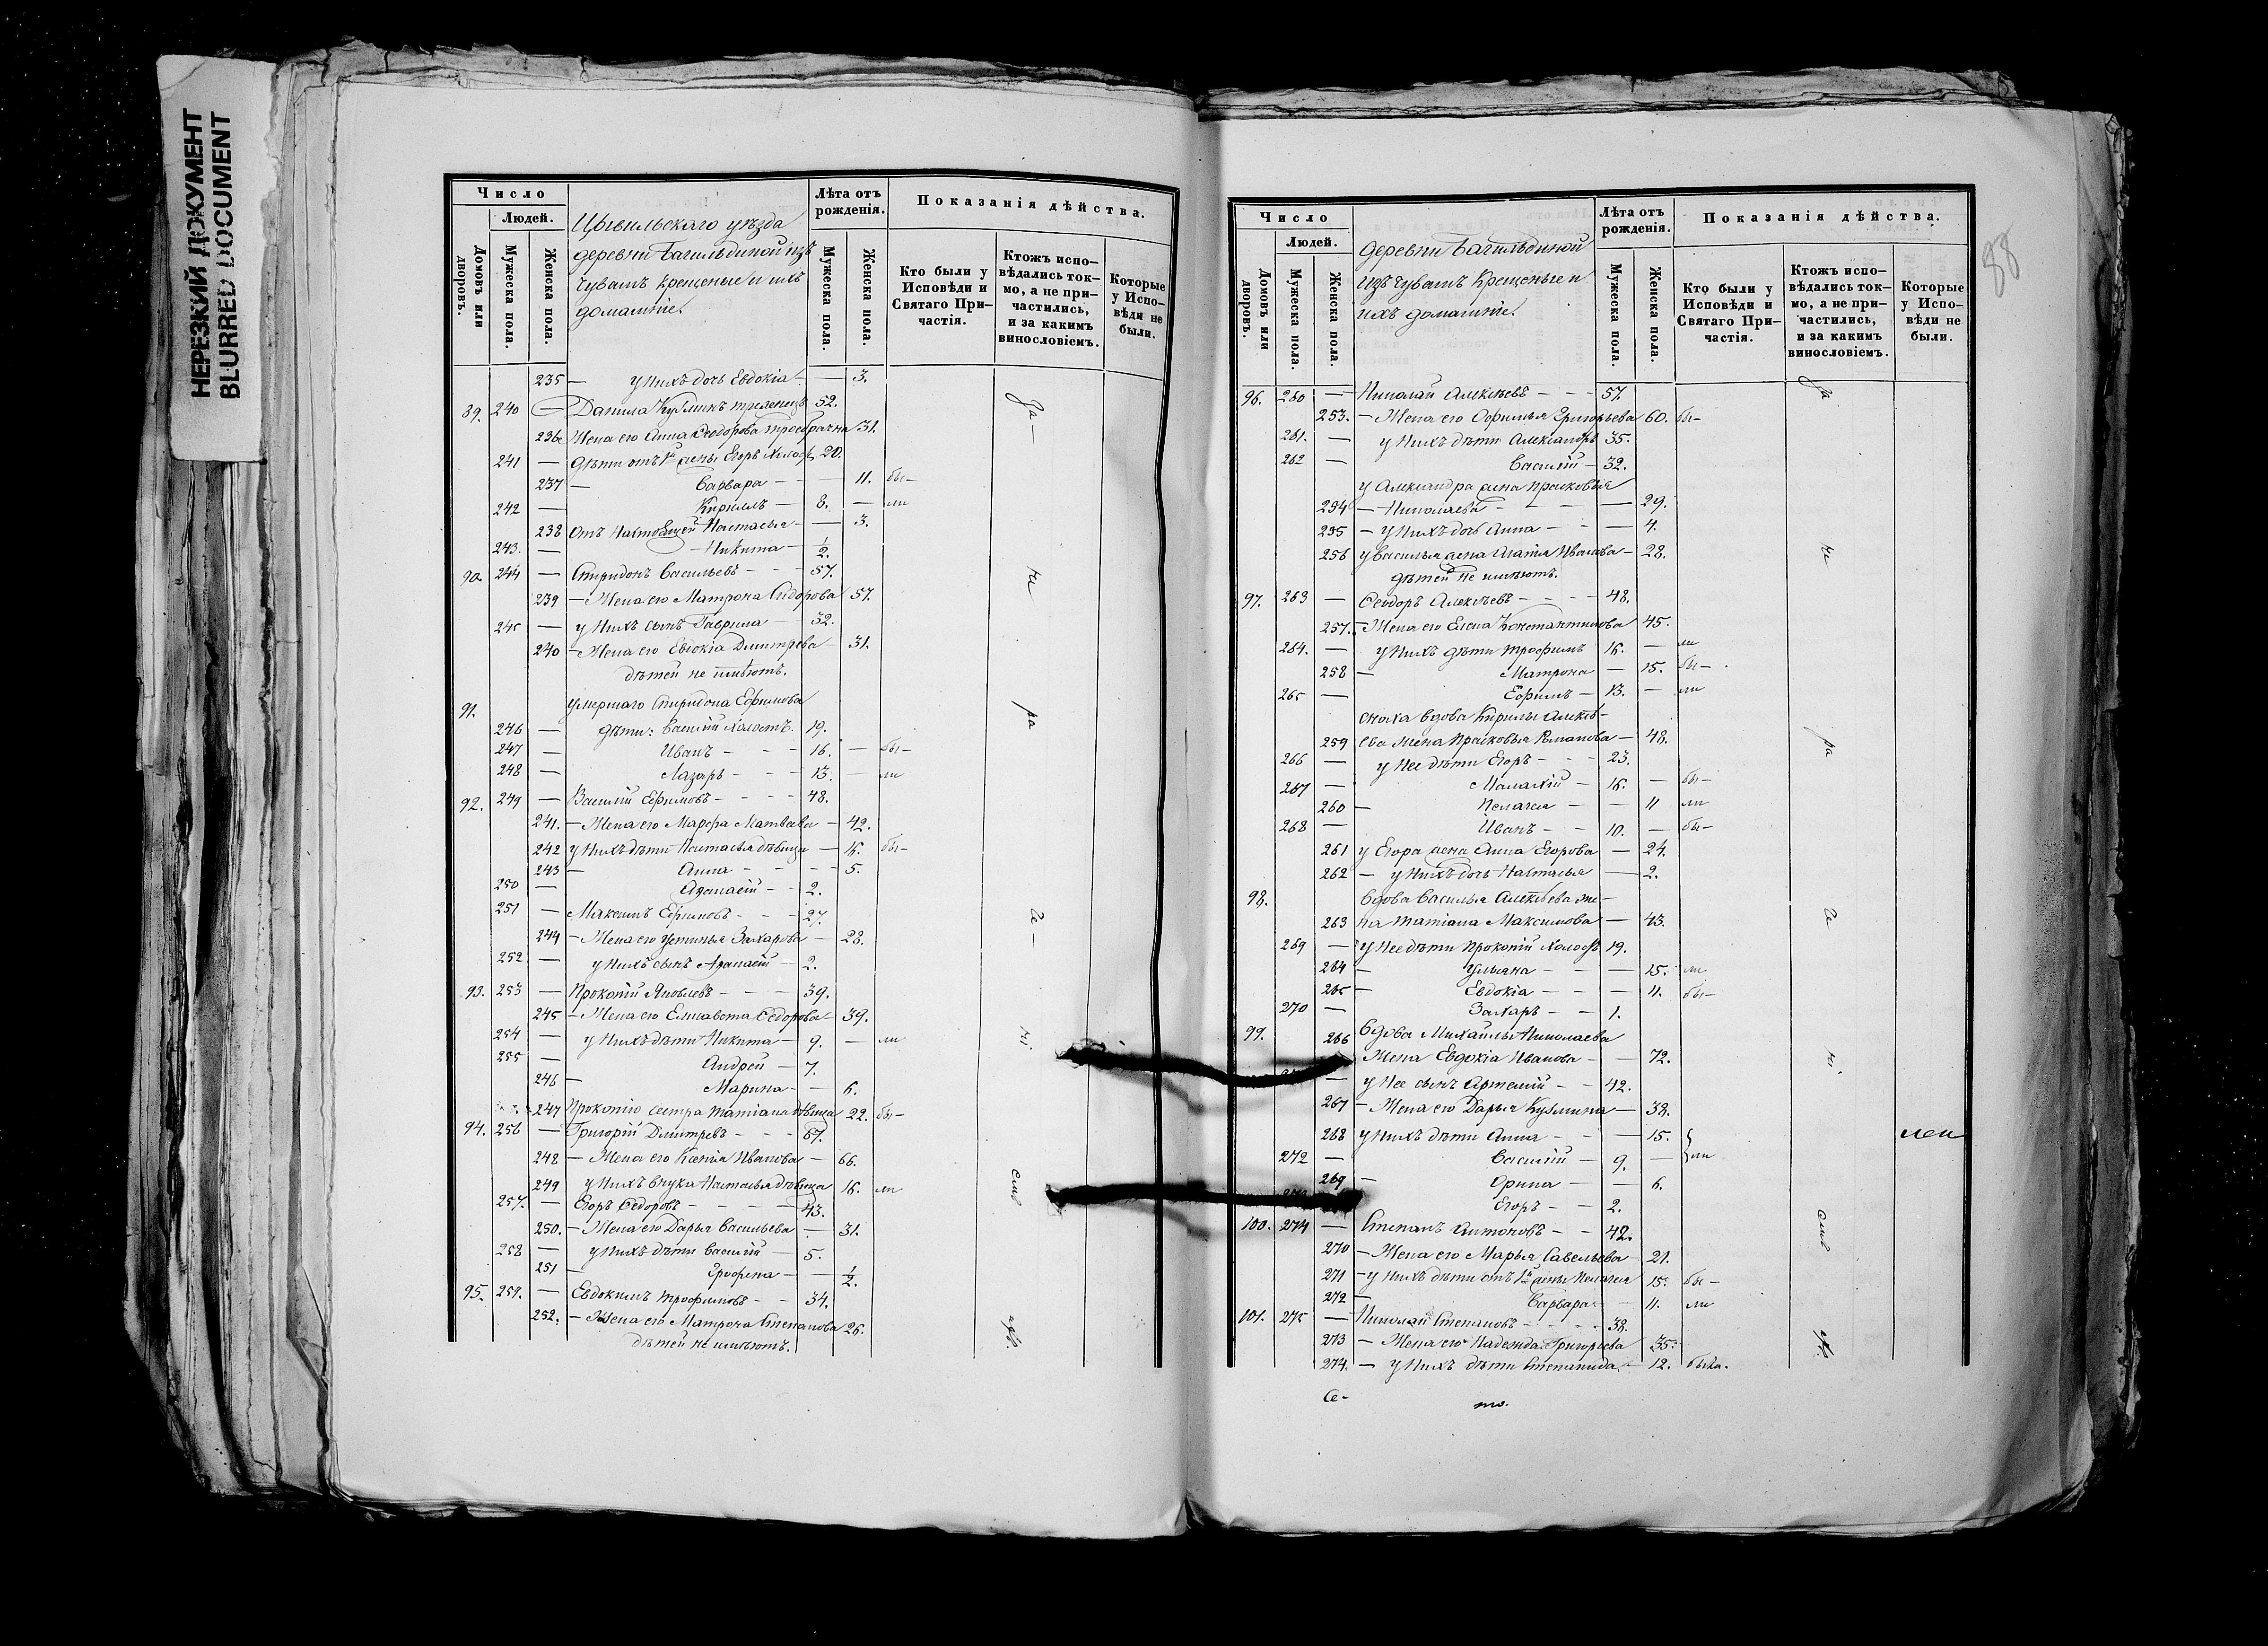 НЕРЕЗКИЙ ДОКУМЕНТ
BLURRED DOCUMENT
Число
Людей.
Домовъ или дворовъ.
Мужеска пола.
Женска пола.
Цывильскаго уѣзда
деревни Багильдиной изъ
чувашъ крещеные и ихъ
домашніе.
Лѣта отъ рожденія.
Мужеска пола.
Женска пола.
Показанія дѣйства.
Кто были у Исповѣди и Святаго При-частія.
Ктожъ испо-вѣдались ток-мо, а не при-частились, и за какимъ винословіемъ.
Которые у Испо-вѣди не были.
235 — у нихъ дочь Евдокія — — 3.
89. 240 — Данила Кузминъ 52.
236 Жена его Анна Ѳеодорова троебрачна 31.
241 — дѣти отъ 1й жены Егоръ холос. 20.
237 — Варвара — — 11. бы-
242 — Кирилъ — 8. — ли
238 отъ настоящей Настасья — — 3.
243. — Никита — 1/2.
90. 244 — Спиридонъ Васильевъ - - - 57.
239 — Жена его Матрона Сидорова 57.
245 — у нихъ сынъ Гаврила — 32.
240 — Жена его Евдокія Дмитрева — 31.
дѣтей не имѣютъ.
91. умершаго Спиридона Ефимова
246 — дѣти: Василій холостъ. 19.
247 — Иванъ - - - 16. — бы-
248 — Лазарь - - - 13. — ли
92. 249 — Василій Ефимовъ - - - - 48.
241. — Жена его Марфа Матвѣева — 42.
242 у нихъ дѣти Настасья дѣвица — 16. бы-
243 — Анна - - - - 5.
250 — Афанасій - - 2.
251 — Максимъ Ефимовъ - - - 27.
244 — Жена его Устинья Захарова — 28.
252 — у нихъ сынъ Афанасій — 2.
93. 253 — Прокопій Яковлевъ - - - 39.
245 — Жена его Елисавета Ѳедорова — 39.
254 — у нихъ дѣти Никита — 9. — ли
255 — Андрей — 7.
246 — Марина — — 6.
247 Прокопію сестра Татіана дѣвица 22. бы-
94. 256 — Григорій Дмитревъ - - - 67.
248 — Жена его Ксенія Иванова — 66.
249 у нихъ внука Настасья дѣвица 16. ли
257. — Егоръ Ѳедоровъ - - - 43.
250. — Жена его Дарья Васильева — 31.
258 — у нихъ дѣти Василій — 5.
251 — — 1/2.
95. 259. — Евдокимъ Трофимовъ - - 34.
252. — Жена его Матрона Степанова 26.
дѣтей не имѣютъ.
88
Число
Людей.
Домовъ или дворовъ.
Мужеска пола.
Женска пола.
деревни Багильдиной
изъ чувашъ крещеные и
ихъ домашніе.
Лѣта отъ рожденія.
Мужеска пола.
Женска пола.
Показанія дѣйства.
Кто были у Исповѣди и Святаго При-частія.
Ктожъ испо-вѣдались ток-мо, а не при-частились, и за какимъ винословіемъ.
Которые у Испо-вѣди не были.
96. 260 — Николай Алексѣевъ - - - 57.
253. — Жена его Офимья Григорьева 60. бы-
261. — у нихъ дѣти Александръ 35.
262 — Василій — 32.
у Александра жена Прасковья
254 — Николаева - - - — 29.
255 — у нихъ дочь Анна - - — 4.
256 у Василья жена Агафія Иванова — 28.
дѣтей не имѣютъ.
97. 263 — Ѳеодоръ Алексѣевъ - - - - 48.
257. — Жена его Елена Константинова 45.
264. — у нихъ дѣти Трофимъ 16. — ли
258 — Матрона — 15. бы-
265 — Ефимъ — 13. — ли
сноха вдова Кирилы Алексѣ-
259 ева жена Прасковья Романова — 48.
266 — у нее дѣти Егоръ - - - 23.
267 — Малахій — 16. — бы-
260 — Пелагея - — 11 ли
268 — Иванъ - - 10. — бы-
261 у Егора жена Анна Егорова — 24.
262 — у нихъ дочь Настасья — 2.
98. вдова Василья Алексѣева же-
263 на Татіана Максимова — 43.
269 — у нее дѣти Прокопій холостъ 19.
264 — Ульяна - - — 15. ли
265 — Евдокія - - — 11. бы-
270 — Захаръ - - 1.
99. 266 вдова Михайлы Николаева
жена Евдокія Иванова - — 72.
— у нее сынъ Артемій - - 42.
267 — Жена его Дарья Кузмина — 38.
268 у нихъ дѣти Анна - - — 15.
272 — Василій — 9. — ли
269 — Орина - — 6.
Егоръ - - 2.
100. 274 — Степанъ Антоновъ - - 42.
270 — Жена его Марья Савельева — 21.
271 — у нихъ дѣти отъ 1й жены Пелагея 15. бы-
272 — Варвара. — 11. ли
101. 275 — Николай Степановъ - - - - 38.
273 — Жена его Надежда Григорьева 35.
274. — у нихъ дѣти Степанида. — 12. была.
Се- то.